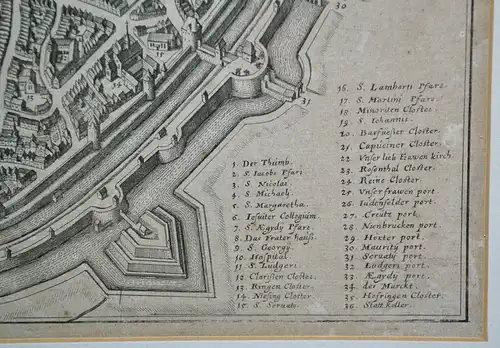 30
31
13
15
1 Der Thumb.
2 S. Iacobi Pfari
3 S. Nicolai.
4 S. Michaeli.
5 S. Margaretha.
6 Iesuiter Collegium.
7 S. Ægydÿ Pfarz.
8 Das Frater hauß.
9 S. Georgÿ.
10 Hospital.
11 S. Ludgeri.
12 Clarissen Closter.
13 Ringen Closter.
14 Niesing Closter.
15 S. Servatÿ.
16. S. Lamberti Pfarz
17 S. Martini Pfarz.
18 Minoriten Closter.
19 S. Iohannis.
20. Barfuesser Closter.
21. Capuciner Closter.
22 Vnser lieb Frawen kirch.
23. Rosenthal Closter.
24 Reine Closter.
25 Vnser frawen port.
26 Iudenfelder port.
27. Creutz port.
28. Nienbrucken port.
29. Hoxter port.
30 Mauritÿ port.
31 Servatÿ port.
32 Ludgeri port.
33 Ægydÿ port.
34 der Marckt.
35 Hofringen Closter.
36 Statt keller.